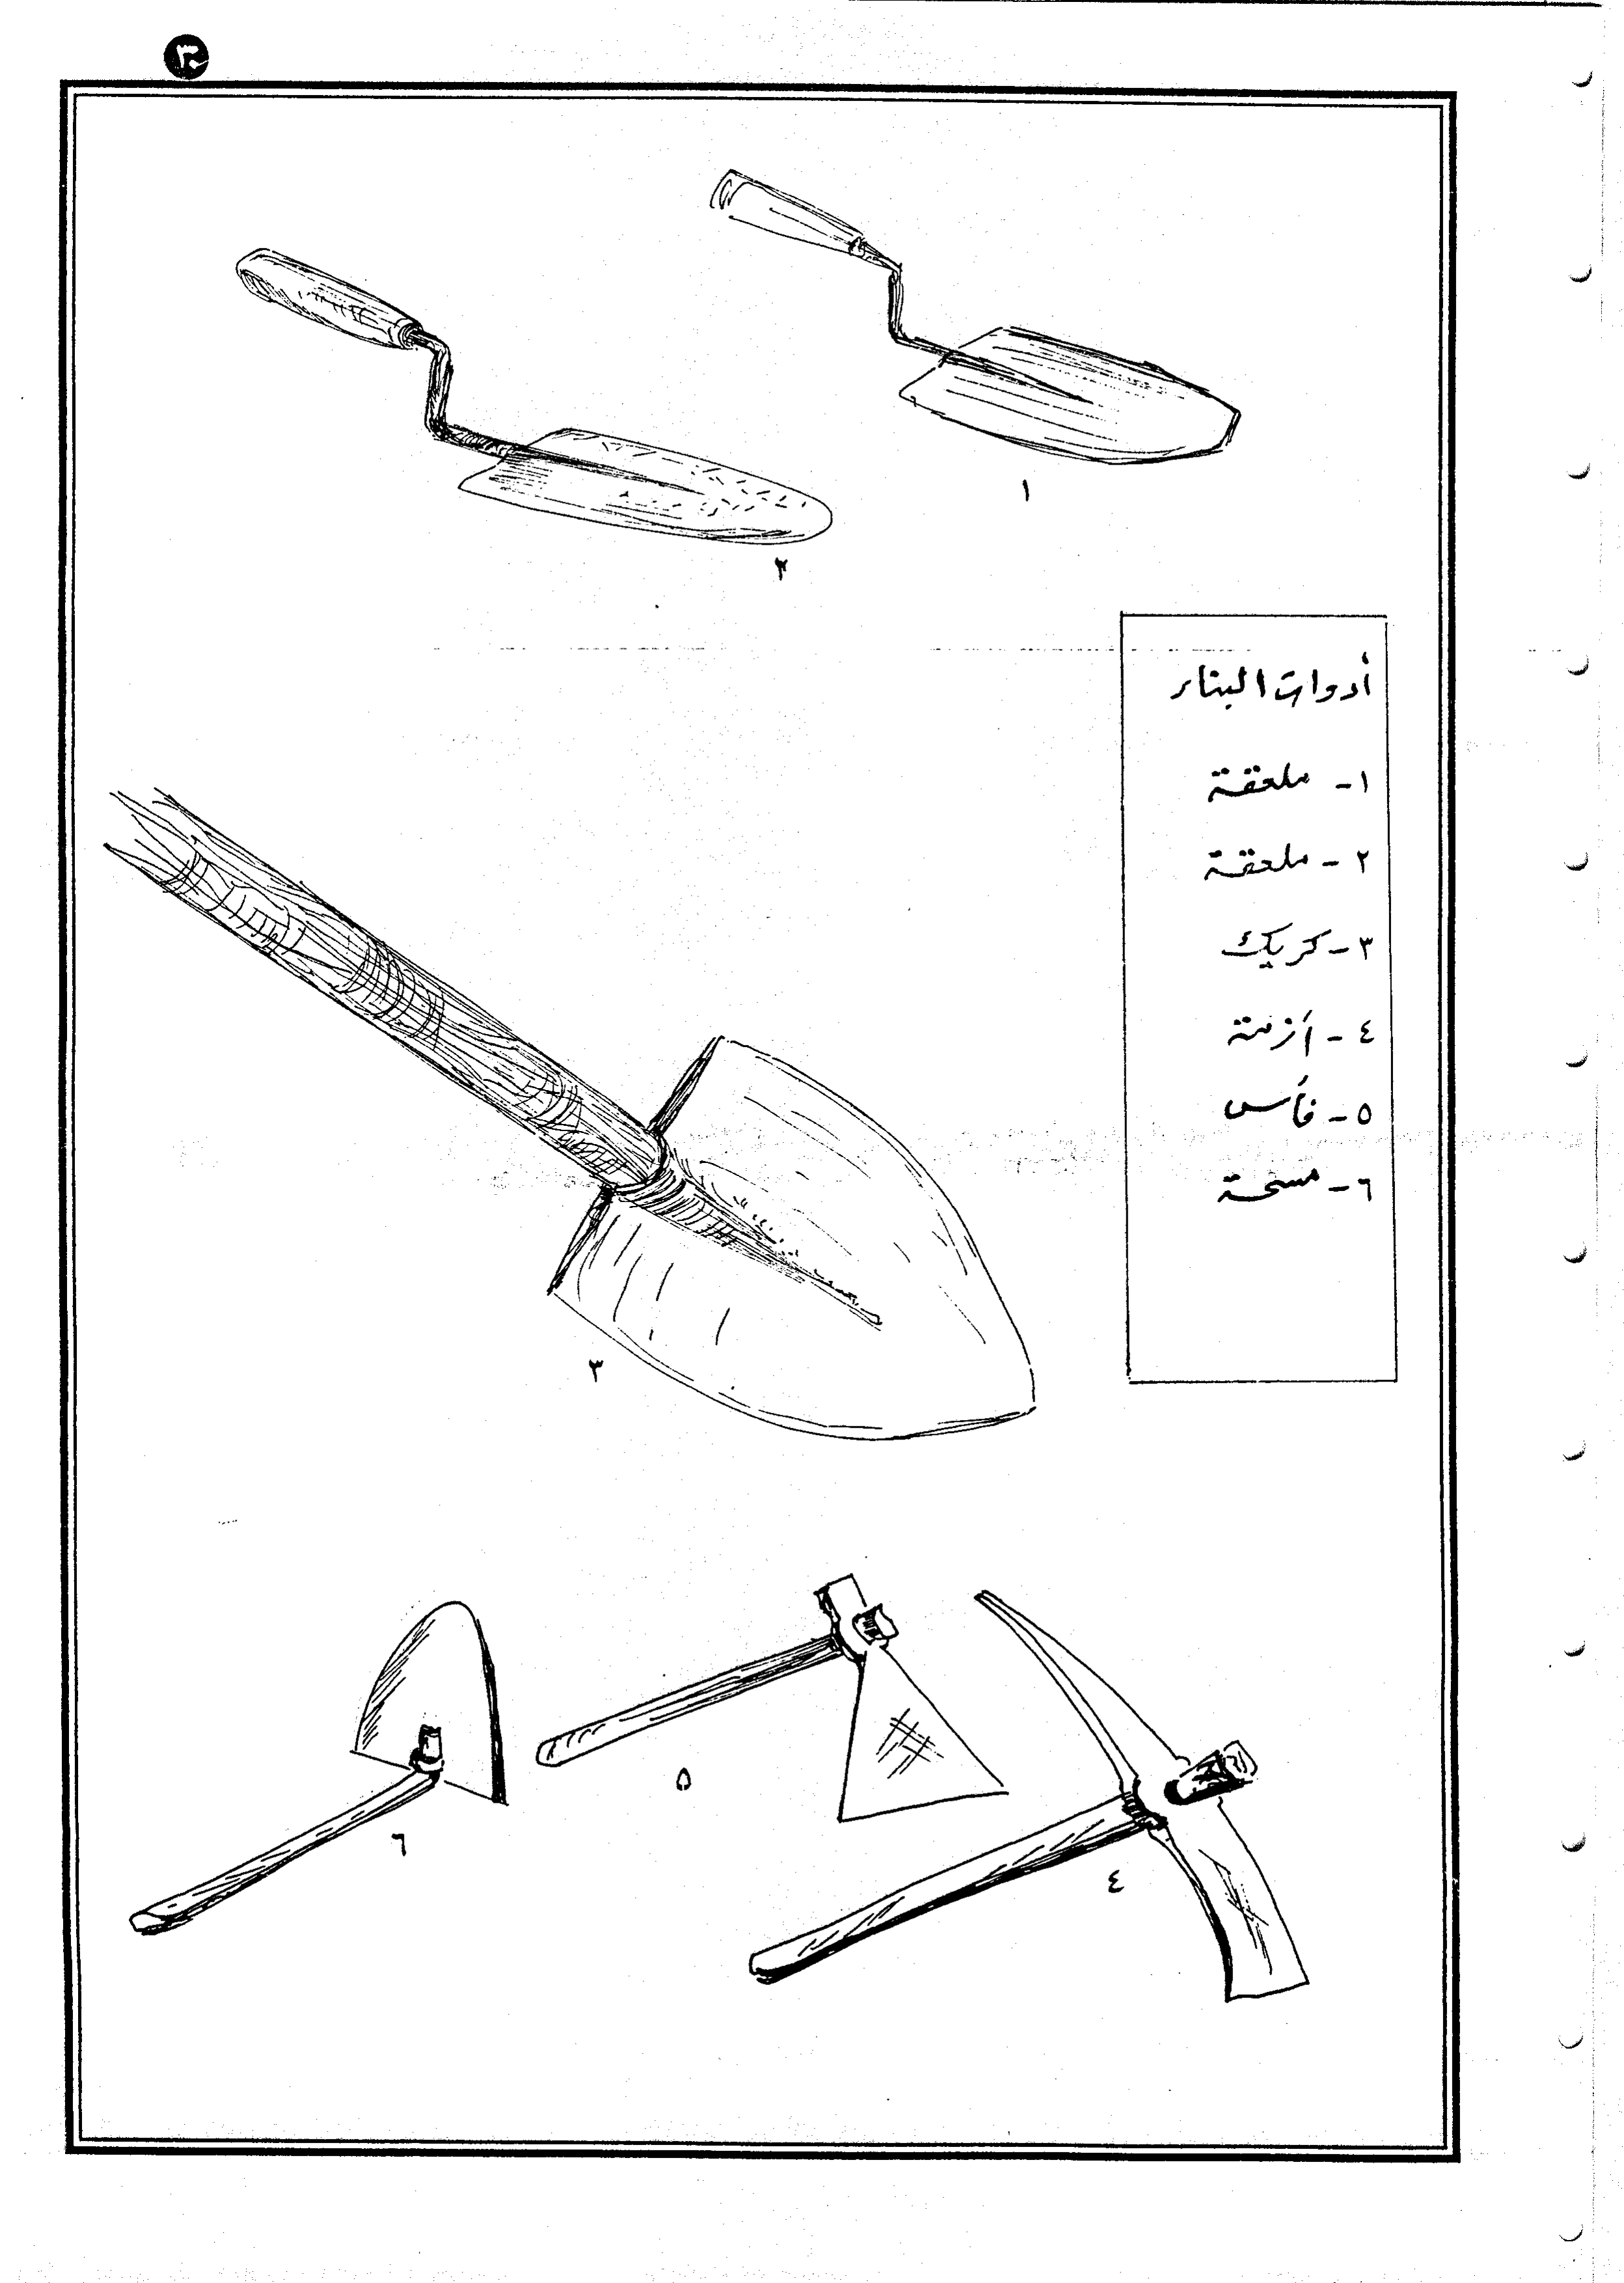 ٣٠
١
٢
أدوات البناء
١- ملعقة
٢- ملعقة
٣- كريك
٤- أزمة
٥- فأس
٦- مسحة
٣
٦
٥
٤